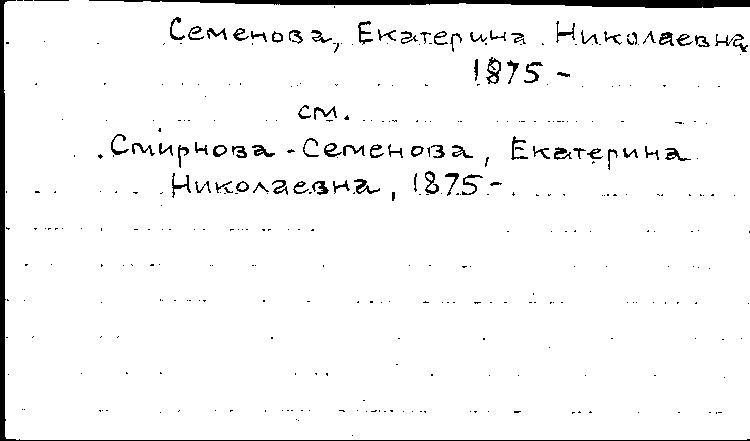 Семенова, Екатерина Николаевна
1875 -
см.
Смирнова - Семенова, Екатерина
Николаевна, 1875 -